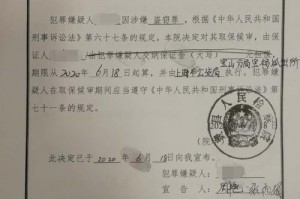 犯罪嫌疑人 因涉嫌 盗窃罪 ,根据《中华人民共和国
刑事诉讼法》第六十七条的规定,本院决定对其取保候审,由
保证人 /由犯罪嫌疑人交纳保证金(大写) 元担保,
期限从2020年6月18日起算,并由上海市公安局 执行。犯罪嫌
疑人在取保候审期间应当遵守《中华人民共和国刑事诉讼法》第
七十一条的规定。
人民检
(院
此决定已于 2020年6月18日向我宣布。
犯罪嫌疑人:
宣告人: